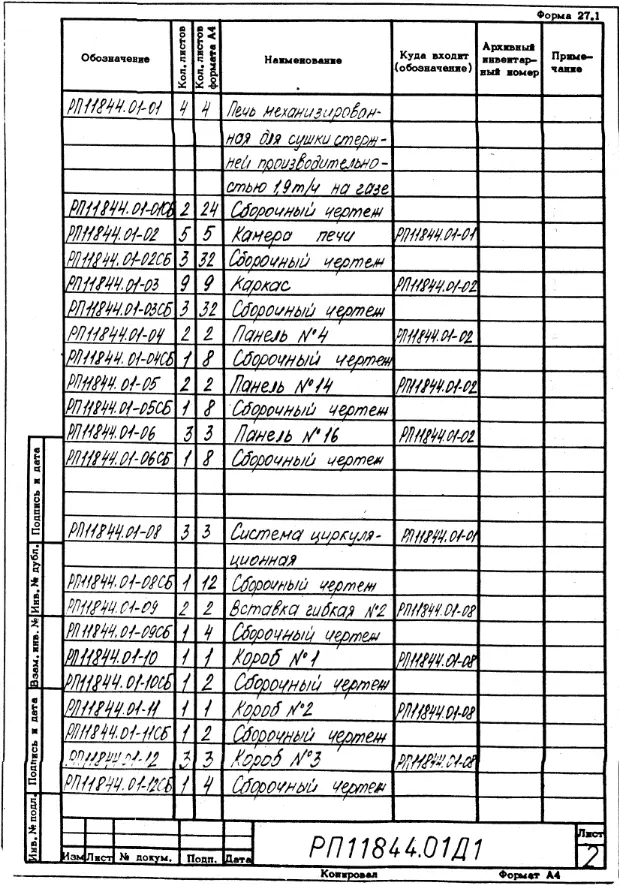 Форма 27.1
Обозначение Кол. листов Кол. листов формата А4 Наименование Куда входит (обозначение) Архивный инвентарный номер Примечание
РП11844.01-01 4 4 Печь механизирован-
ная для сушки стерж-
ней производительно-
стью 1,9 т/ч на газе
РП11844.01-01СБ 2 24 Сборочный чертеж
РП11844.01-02 5 5 Камера печи РП11844.01-01
РП11844.01-02СБ 3 32 Сборочный чертеж
РП11844.01-03 9 9 Каркас РП11844.01-02
РП11844.01-03СБ 3 32 Сборочный чертеж
РП11844.01-04 2 2 Панель №4 РП11844.01-02
РП11844.01-04СБ 1 8 Сборочный чертеж
РП11844.01-05 2 2 Панель №14 РП11844.01-02
РП11844.01-05СБ 1 8 Сборочный чертеж
РП11844.01-06 3 3 Панель №16 РП11844.01-02
РП11844.01-06СБ 1 8 Сборочный чертеж
РП11844.01-08 3 3 Система циркуля- РП11844.01-01
ционная
РП11844.01-08СБ 1 12 Сборочный чертеж
РП11844.01-09 2 2 Вставка гибкая №2 РП11844.01-08
РП11844.01-09СБ 1 4 Сборочный чертеж
РП11844.01-10 1 1 Короб №1 РП11844.01-08
РП11844.01-10СБ 1 2 Сборочный чертеж
РП11844.01-11 1 1 Короб №2 РП11844.01-08
РП11844.01-11СБ 1 2 Сборочный чертеж
РП11844.01-12 3 3 Короб №3 РП11844.01-08
РП11844.01-12СБ 1 4 Сборочный чертеж
Инв. № подл. Подпись и дата Взам. инв. № Инв. № дубл. Подпись и дата
Изм Лист № докум. Подп. Дата
РП11844.01Д1
Лист
2
Копировал Формат А4